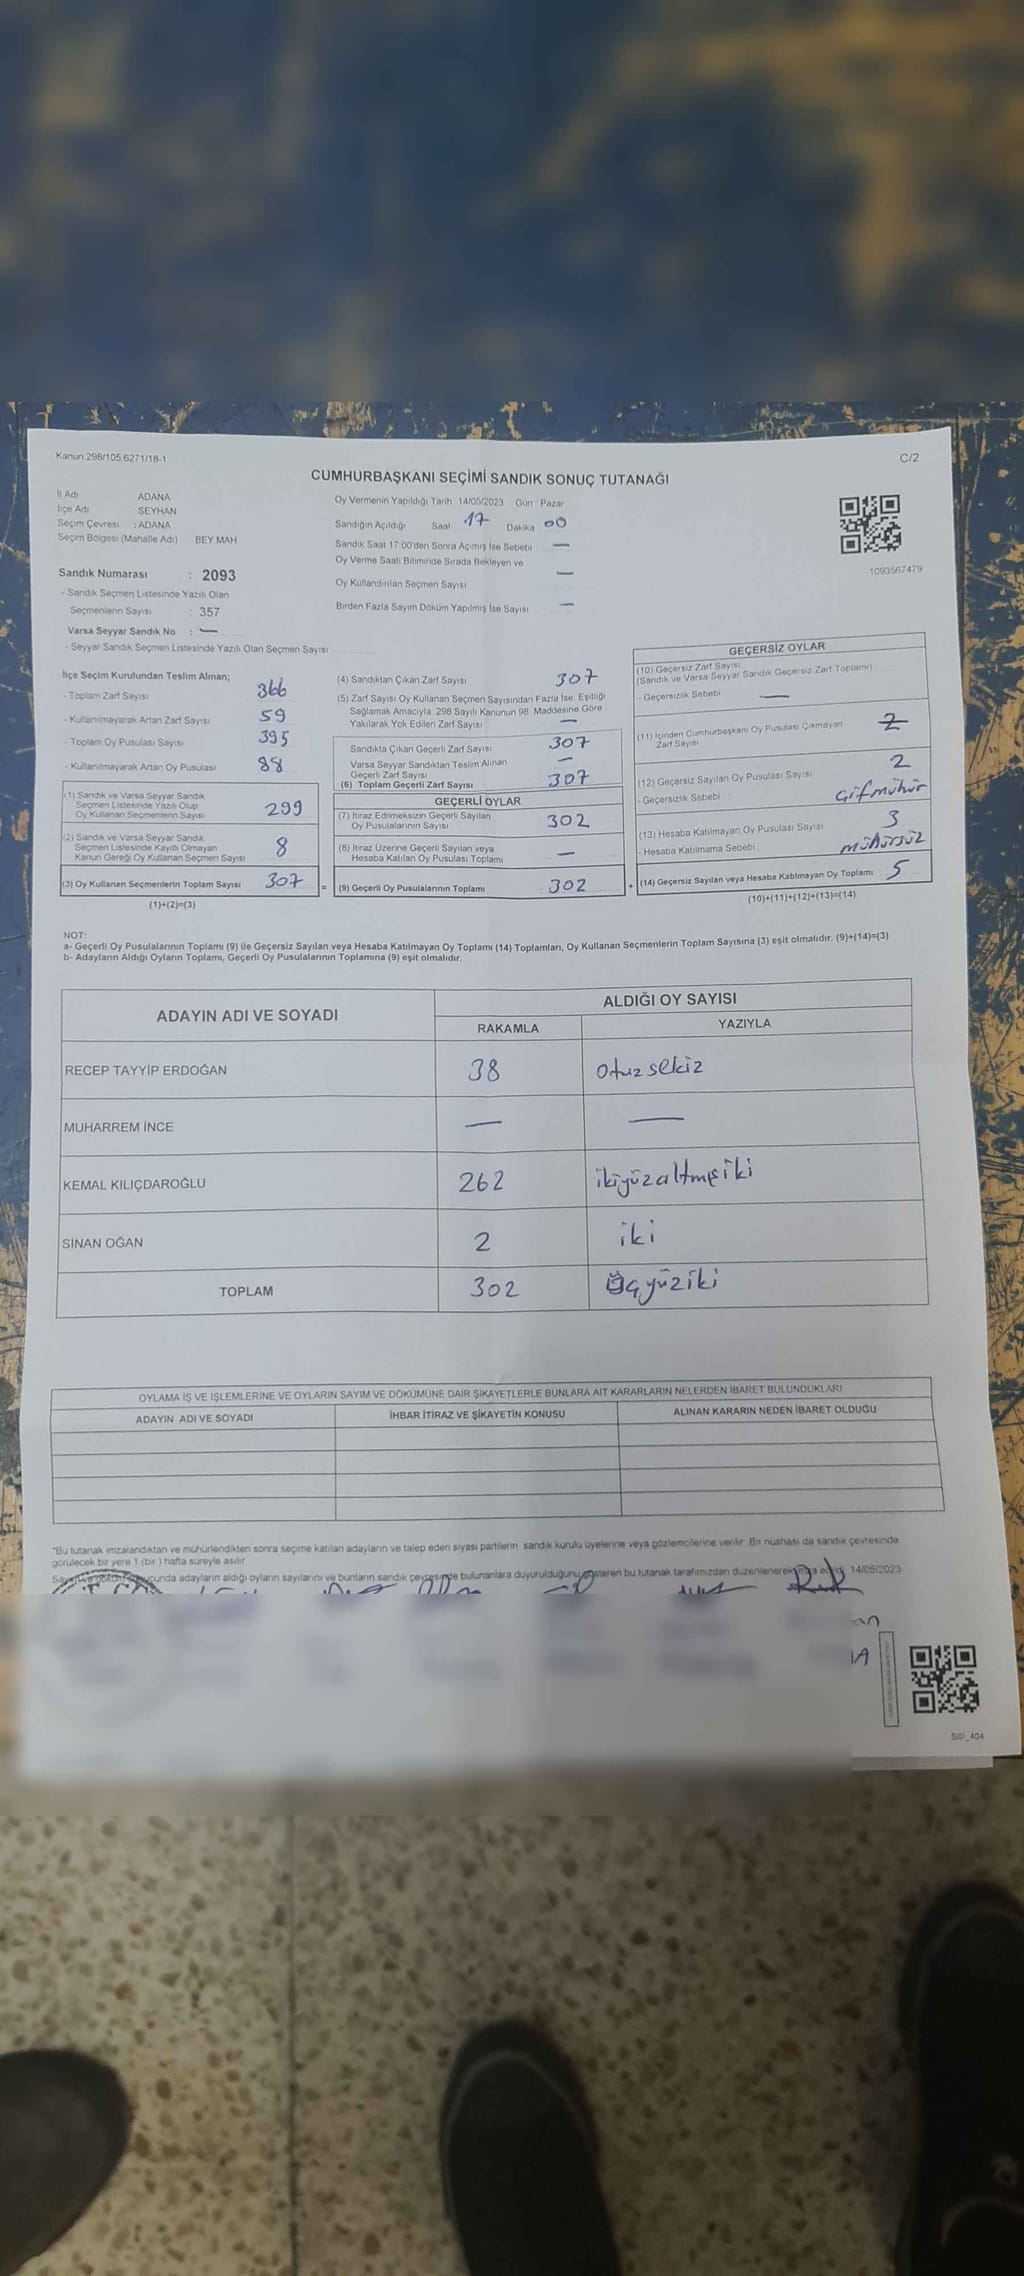 Kanun 298/105,6271/18-1
C/2
CUMHURBAŞKANI SEÇİMİ SANDIK SONUÇ TUTANAĞI
İl Adı ADANA
İlçe Adı SEYHAN
Seçim Çevresi : ADANA
Seçim Bölgesi (Mahalle Adı) BEY MAH
Sandık Numarası : 2093
- Sandık Seçmen Listesinde Yazılı Olan
Seçmenlerin Sayısı : 357
Varsa Seyyar Sandık No : —
- Seyyar Sandık Seçmen Listesinde Yazılı Olan Seçmen Sayısı
Oy Vermenin Yapıldığı Tarih 14/05/2023 Gün Pazar
Sandığın Açıldığı Saat 17 Dakika 00
Sandık Saat 17:00'den Sonra Açılmış İse Sebebi —
Oy Verme Saati Bitiminde Sırada Bekleyen ve
Oy Kullandırılan Seçmen Sayısı —
Birden Fazla Sayım Döküm Yapılmış İse Sayısı —
1093567479
İlçe Seçim Kurulundan Teslim Alınan;
- Toplam Zarf Sayısı 366
- Kullanılmayarak Artan Zarf Sayısı 59
- Toplam Oy Pusulası Sayısı 395
- Kullanılmayarak Artan Oy Pusulası 88
(1) Sandık ve Varsa Seyyar Sandık
Seçmen Listesinde Yazılı Olup
Oy Kullanan Seçmenlerin Sayısı 299
(2) Sandık ve Varsa Seyyar Sandık
Seçmen Listesinde Kayıtlı Olmayan
Kanun Gereği Oy Kullanan Seçmen Sayısı 8
(3) Oy Kullanan Seçmenlerin Toplam Sayısı 307 =
(1)+(2)=(3)
(4) Sandıktan Çıkan Zarf Sayısı 307
(5) Zarf Sayısı Oy Kullanan Seçmen Sayısından Fazla İse, Eşitliği
Sağlamak Amacıyla, 298 Sayılı Kanunun 98. Maddesine Göre
Yakılarak Yok Edilen Zarf Sayısı —
Sandıkta Çıkan Geçerli Zarf Sayısı 307
Varsa Seyyar Sandıktan Teslim Alınan
Geçerli Zarf Sayısı —
(6) Toplam Geçerli Zarf Sayısı 307
GEÇERLİ OYLAR
(7) İtiraz Edilmeksizin Geçerli Sayılan
Oy Pusulalarının Sayısı 302
(8) İtiraz Üzerine Geçerli Sayılan veya
Hesaba Katılan Oy Pusulası Toplamı —
(9) Geçerli Oy Pusulalarının Toplamı : 302 +
GEÇERSİZ OYLAR
(10) Geçersiz Zarf Sayısı
(Sandık ve Varsa Seyyar Sandık Geçersiz Zarf Toplamı)
- Geçersizlik Sebebi —
(11) İçinden Cumhurbaşkanı Oy Pusulası Çıkmayan
Zarf Sayısı
(12) Geçersiz Sayılan Oy Pusulası Sayısı 2
- Geçersizlik Sebebi çifmühür
(13) Hesaba Katılmayan Oy Pusulası Sayısı 3
- Hesaba Katılmama Sebebi mühürsüz
(14) Geçersiz Sayılan veya Hesaba Katılmayan Oy Toplamı 5
(10)+(11)+(12)+(13)=(14)
NOT:
a- Geçerli Oy Pusulalarının Toplamı (9) ile Geçersiz Sayılan veya Hesaba Katılmayan Oy Toplamı (14) Toplamları, Oy Kullanan Seçmenlerin Toplam Sayısına (3) eşit olmalıdır. (9)+(14)=(3)
b- Adayların Aldığı Oyların Toplamı, Geçerli Oy Pusulalarının Toplamına (9) eşit olmalıdır.
ADAYIN ADI VE SOYADI
ALDIĞI OY SAYISI
RAKAMLA YAZIYLA
RECEP TAYYİP ERDOĞAN 38 otuzsekiz
MUHARREM İNCE — —
KEMAL KILIÇDAROĞLU 262 ikiyüzaltmışiki
SİNAN OĞAN 2 iki
TOPLAM 302 üçyüziki
OYLAMA İŞ VE İŞLEMLERİNE VE OYLARIN SAYIM VE DÖKÜMÜNE DAİR ŞİKAYETLERLE BUNLARA AİT KARARLARIN NELERDEN İBARET BULUNDUKLARI
ADAYIN ADI VE SOYADI İHBAR İTİRAZ VE ŞİKAYETİN KONUSU ALINAN KARARIN NEDEN İBARET OLDUĞU
*Bu tutanak imzalandıktan ve mühürlendikten sonra seçime katılan adayların ve talep eden siyasi partilerin sandık kurulu üyelerine veya gözlemcilerine verilir. Bir nüshası da sandık çevresinde
görülecek bir yere 1 (bir) hafta süreyle asılır
adayların aldığı oyların sayılarını ve bunların sandık çevresinde bulunanlara duyurulduğunu gösteren bu tutanak tarafımızdan düzenlenerek 14/05/2023
SSI_404